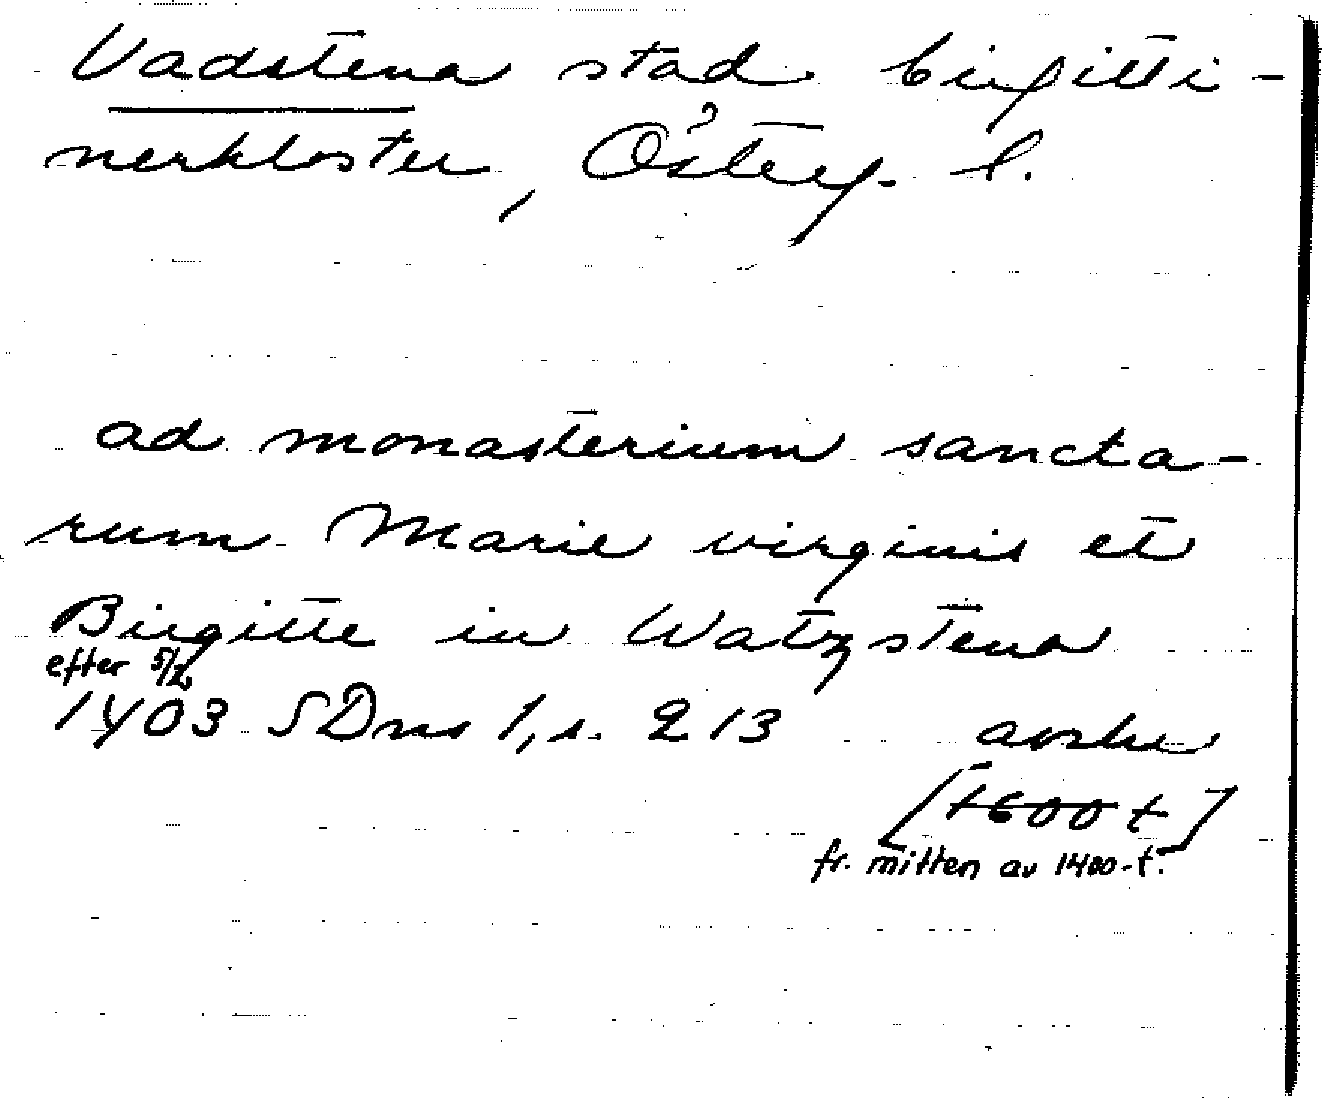 Vadstena stad birgitti-
nerkloster, Österg. l.
ad monasterium sancta-
rum Marie virginis et
Birgitte in Watzstena
efter 5/2
1403 SDns 1, s. 213 avskr
[1600 t]
fr. mitten av 1400-t.